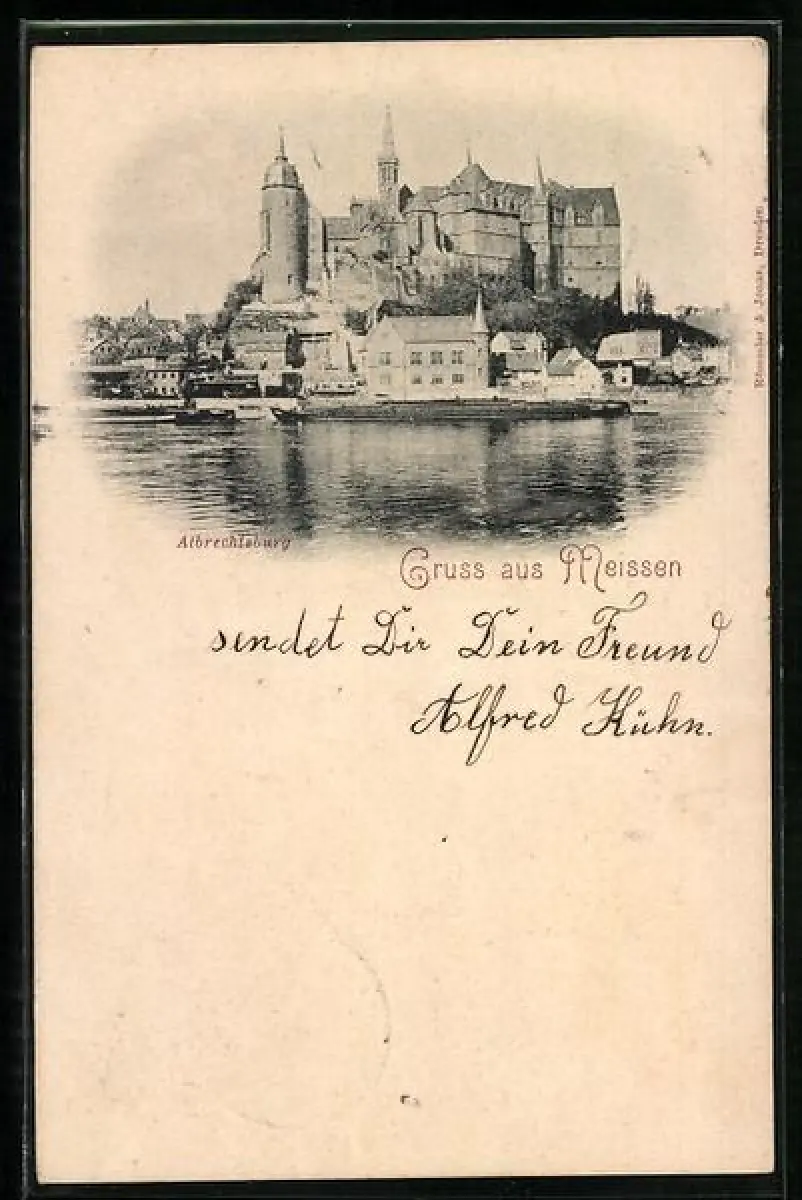 Albrechtsburg
Gruss aus Meissen
sendet Dir Dein Freund
Alfred Kühn.
& Jonas, Dresden